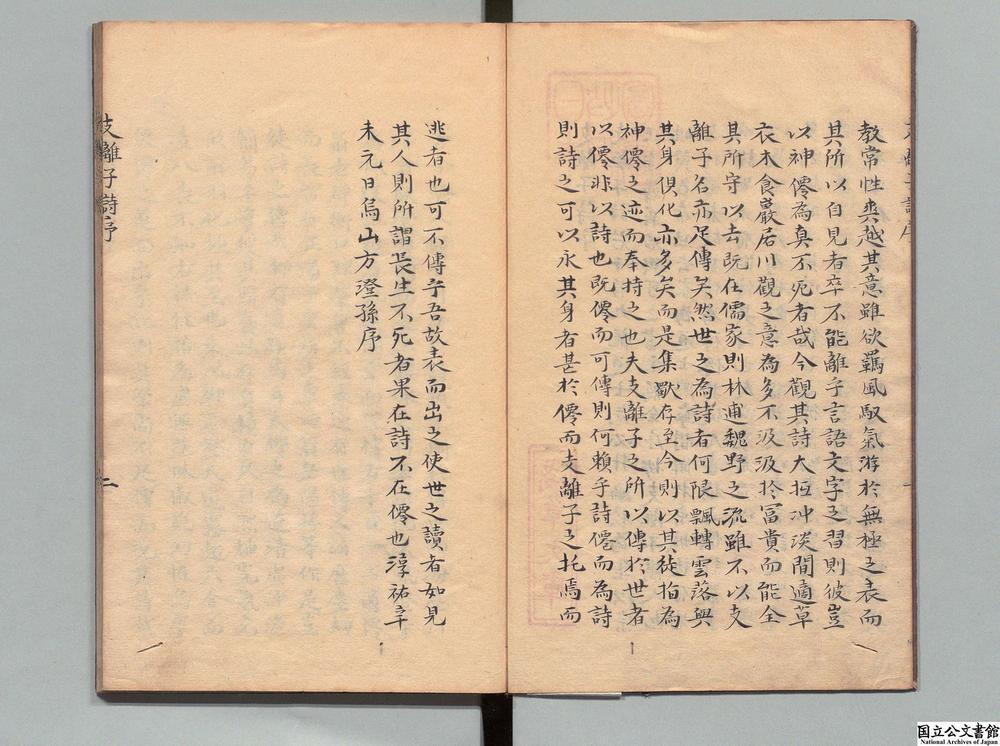 教常性與越其意雖欲羈風馭氣游於無極之表而
其所以自見者卒不能離乎言語文字之習則彼豈
以神僊為真不死者哉今觀其詩大抵冲淡間適草
衣木食巖居川觀之意為多不汲汲於富貴而能全
其所守以去既在儒家則林逋魏野之流雖不以支
離子名亦足傳矣然世之為詩者何限飄轉雲落與
其身俱化亦多矣而是集歸存至今則以其徒指為
神僊之迹而奉持之也夫支離子之所以傳於世者
以僊非以詩也既僊而可傳則何賴乎詩僊而為詩
則詩之可以永其身者甚於僊而支離子之托焉而
逃者也可不傳乎吾故表而出之使世之讀者如見
其人則所謂長生不死者果在詩不在僊也淳祐辛
未元日烏山方澄孫序
支離子詩序
二
国立公文書館
National Archives of Japan